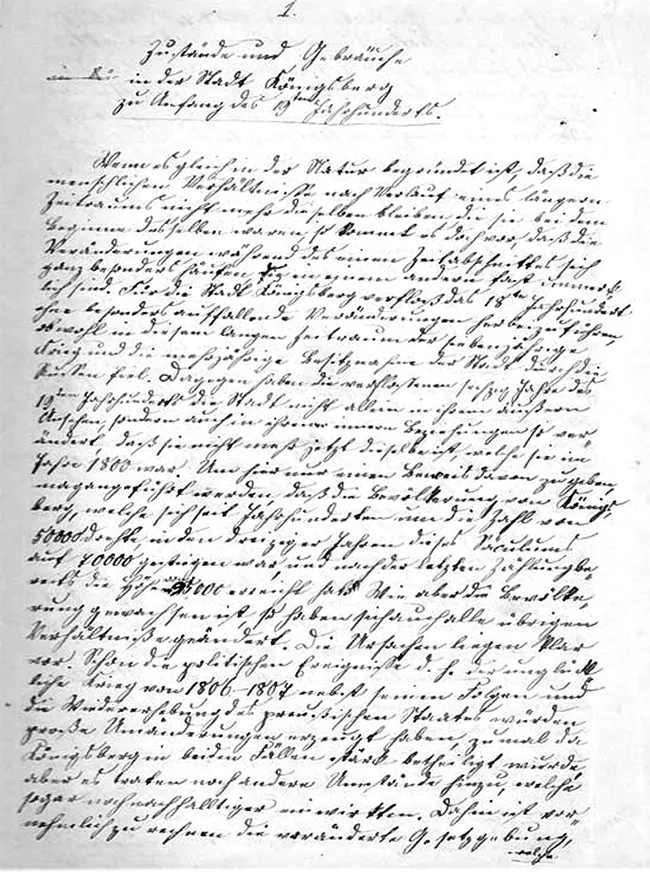 1.
Zustände und Gebräuche
in der Stadt Königsberg
zu Anfang des 19ten Jahrhunderts.
Wenn es gleich in der Natur begründet ist, daß die
menschlichen Verhältniße nach Verlauf eines längern
Zeitraums nicht mehr dieselben bleiben die sie bei dem
Beginne desselben waren, so kommt es doch vor, daß die
Veränderungen während des einen Zeitabschnittes sich
ganz besonders häufen, in einem andern fast unmerk
lich sind. Für die Stadt Königsberg verfloß das 18te Jahrhundert
ohne besonders auffallende Veränderungen herbeizuführen,
obwohl in diesem langen Zeitraum der siebenjährige
Krieg und die mehrjährige Besitznahme der Stadt durch die
Russen fiel. Dagegen haben die verflossenen sechzig Jahre des
19ten Jahrhunderts die Stadt nicht allein in ihrem äußern
Ansehen, sondern auch in ihren innern Beziehungen so ver=
ändert, daß sie nicht mehr jetzt dieselbe ist, welche sie im
Jahre 1800 war. Um hier nur einen Beweis davon zu geben,
mag angeführt werden, daß die Bevölkerung von Königs
berg, welche sich seit Jahrhunderten um die Zahl von
50000 drehte, in den dreiziger Jahren dieses Saeculums
auf 70000 gestiegen war, und nach der letzten Zählung be=
reits die Höhe 95000 erreicht hat. Wie aber die Bevölke,
rung gewachsen ist, so haben sich auch alle übrigen
Verhältniße geändert. Die Ursachen liegen klar
vor. Schon die politischen Ereigniße d. h. der unglück
liche Krieg von 1806–1807 nebst seinen Folgen und
die Wiedererhebung des preußischen Staates würden
große Umänderungen erzeugt haben, zumal da
Königsberg in beiden Fällen stark betheiligt wurde,
aber es traten noch andere Umstände hinzu, welche
sogar noch nachhaltiger einwirkten. Dahin ist vor=
nehmlich zu rechnen die veränderte Gesetzgebung,
welche